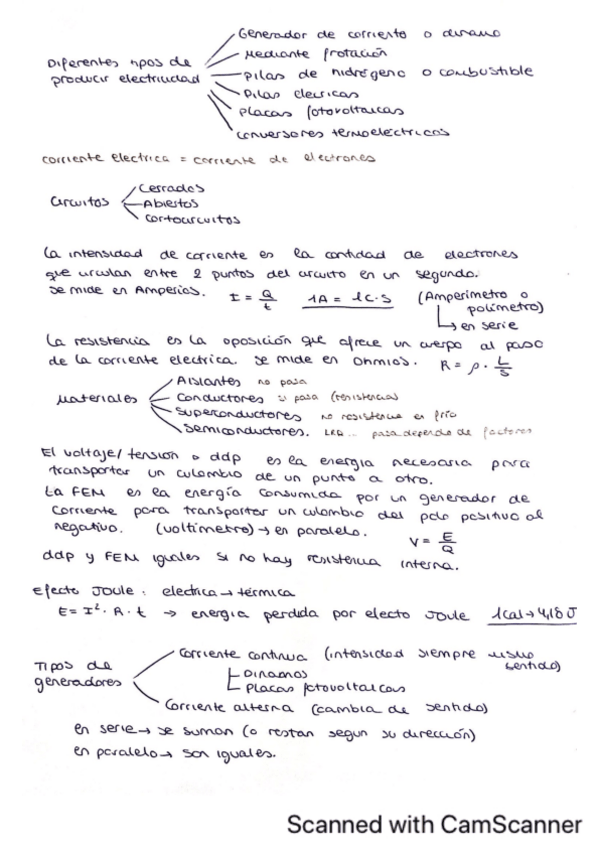 Generador de corriente o dinamo
Diferentes tipos de
producir electricidad
Mediante frotación
Pilas de hidrógeno o combustible
Pilas electricas
Placas fotovoltaicas
Conversores termoeléctricos
corriente electrica = corriente de electrones
Circuitos
Cerrados
Abiertos
Cortocircuitos
La intensidad de corriente es la cantidad de electrones
que circulan entre 2 puntos del circuito en un segundo.
Se mide en Amperios. I = Q/t 1A = 1C·S (Amperimetro o
polímetro)
en serie
La resistencia es la oposición que ofrece un cuerpo al paso
de la corriente electrica. Se mide en Ohmios. R = ρ · L/S
Materiales
Aislantes no pasa
Conductores si pasa (resistencia)
Superconductores no resistencia en frío
Semiconductores. pasa depende de factores
El voltaje/tensión o ddp es la energia necesaria para
transportar un culombio de un punto a otro.
La FEM es la energía consumida por un generador de
corriente para transportar un culombio del polo positivo al
negativo. (voltímetro) → en paralelo. V = E/Q
ddp y FEM iguales si no hay resistencia interna.
Efecto Joule: electrica → térmica
E = I²· R · t → energia perdida por efecto Joule 1cal → 4,18 J
Tipos de
generadores
Corriente continua (intensidad siempre mismo
sentido)
Dinamos
Placas fotovoltaicas
Corriente alterna (cambia de sentido)
en serie → se suman (o restan segun su dirección)
en paralelo → son iguales.
Scanned with CamScanner